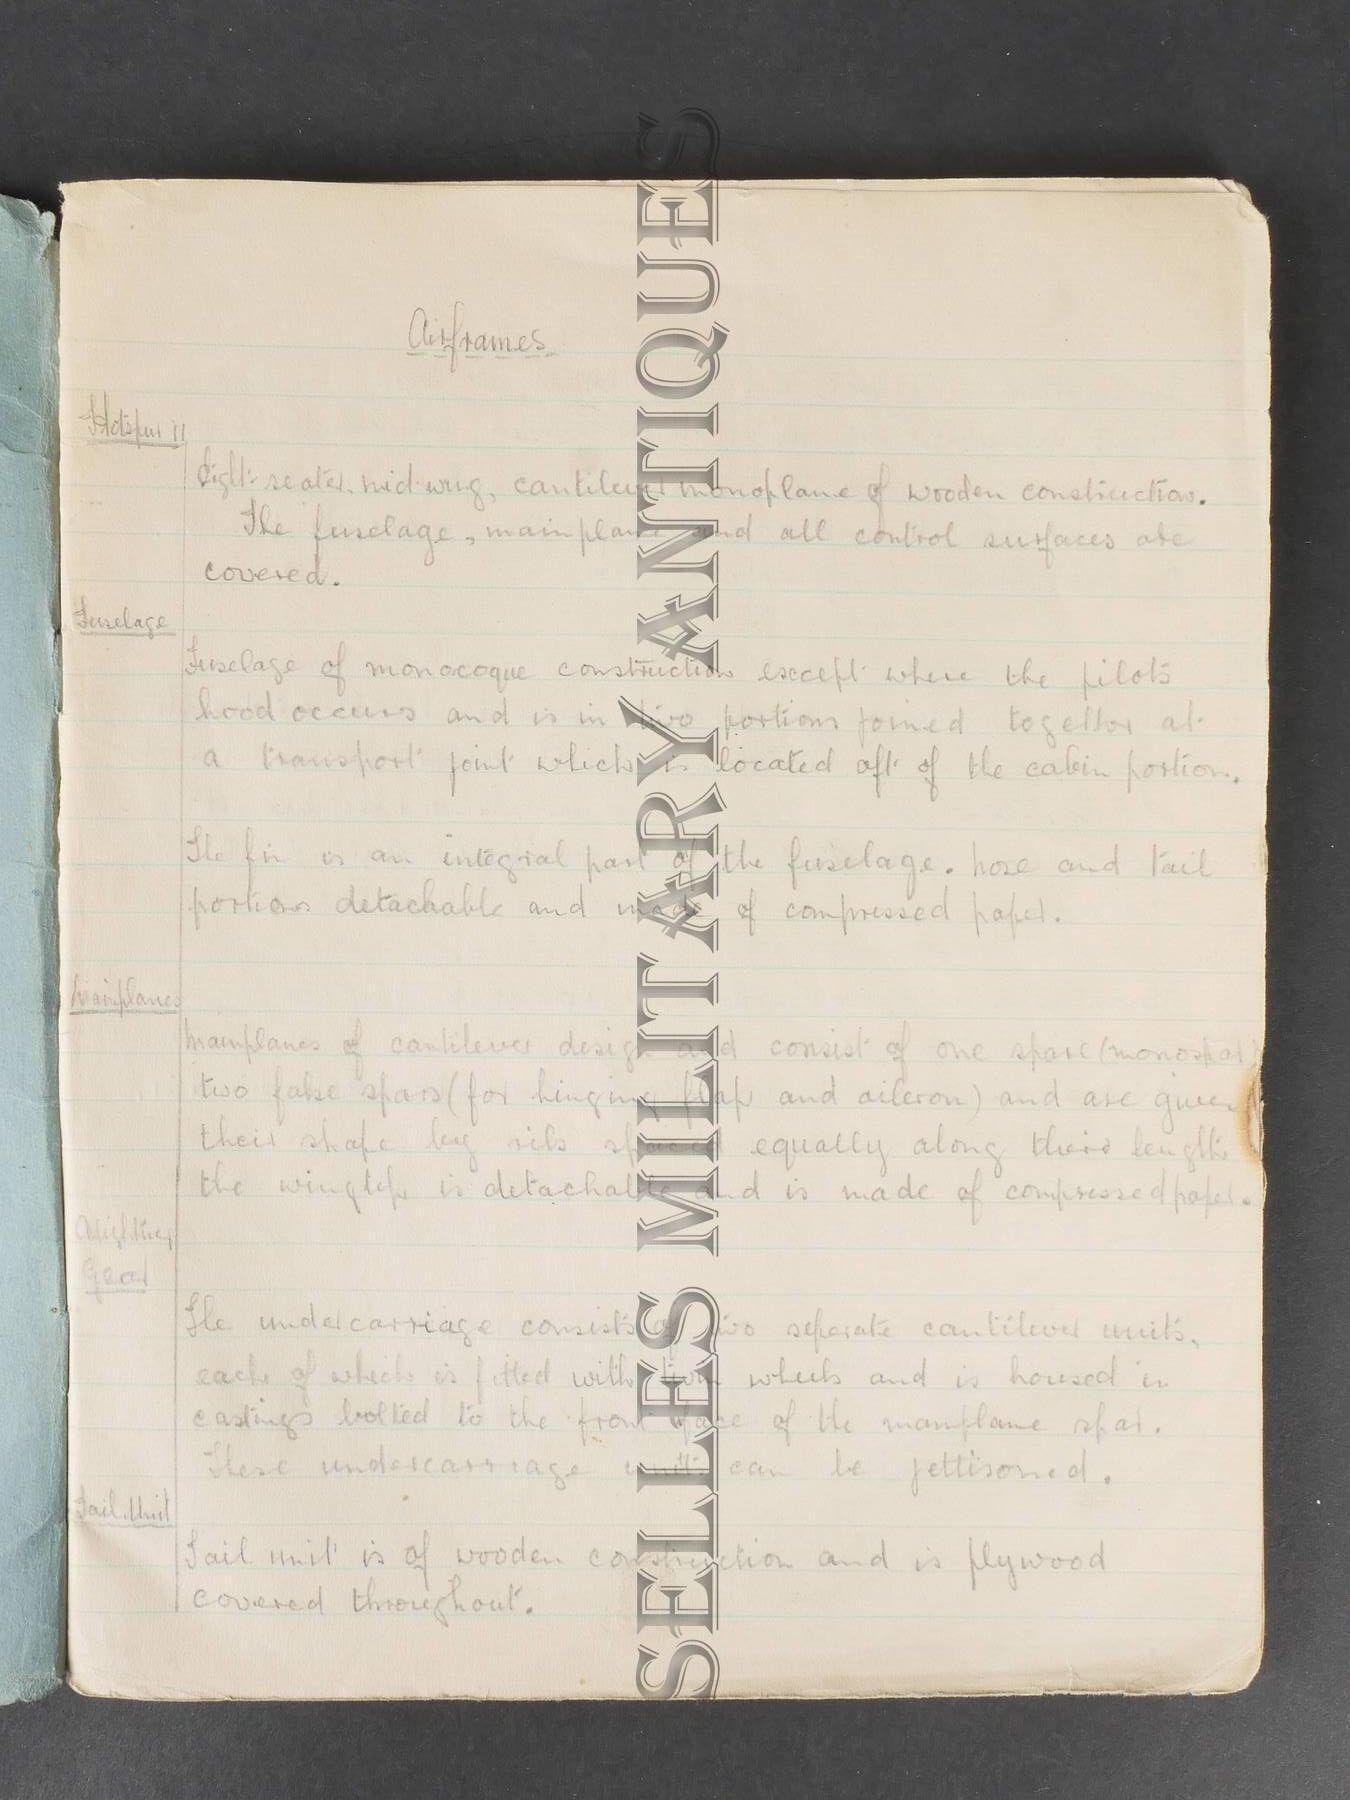 Airframes
Hotspur II
Eight seater, mid-wing, cantilever monoplane of wooden construction.
The fuselage, mainplane and all control surfaces are
covered.
Fuselage
Fuselage of monocoque construction except where the pilots
hood occurs and is in two portions joined together at
a transport joint which is located aft of the cabin portion.
The fin is an integral part of the fuselage. nose and tail
portions detachable and made of compressed paper.
Mainplanes
Mainplanes of cantilever design and consist of one spare (monospar)
two false spars (for hinging flap and aileron) and are given
their shape by ribs spaced equally along their length
the wingtip is detachable and is made of compressed paper.
Alighting
Gear
The undercarriage consists of two seperate cantilever units,
each of which is fitted with twin wheels and is housed in
castings bolted to the front face of the mainplane spar.
These undercarriage units can be jettisoned.
Tail Unit
Tail unit is of wooden construction and is plywood
covered throughout.
SELLES MILITARY ANTIQUES